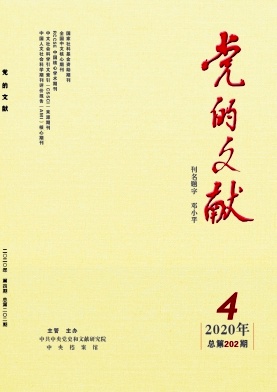 党的文献
刊名题字 邓小平
国家社科基金资助期刊
全国中文核心期刊
中文社会科学引文索引（CSSCI）来源期刊
中国人文社会科学期刊评价报告（AMI）核心期刊
党的文献
二〇二〇年 第四期 总第二〇二期
4
2020年
总第202期
主管 主办
中共中央党史和文献研究院
中央档案馆